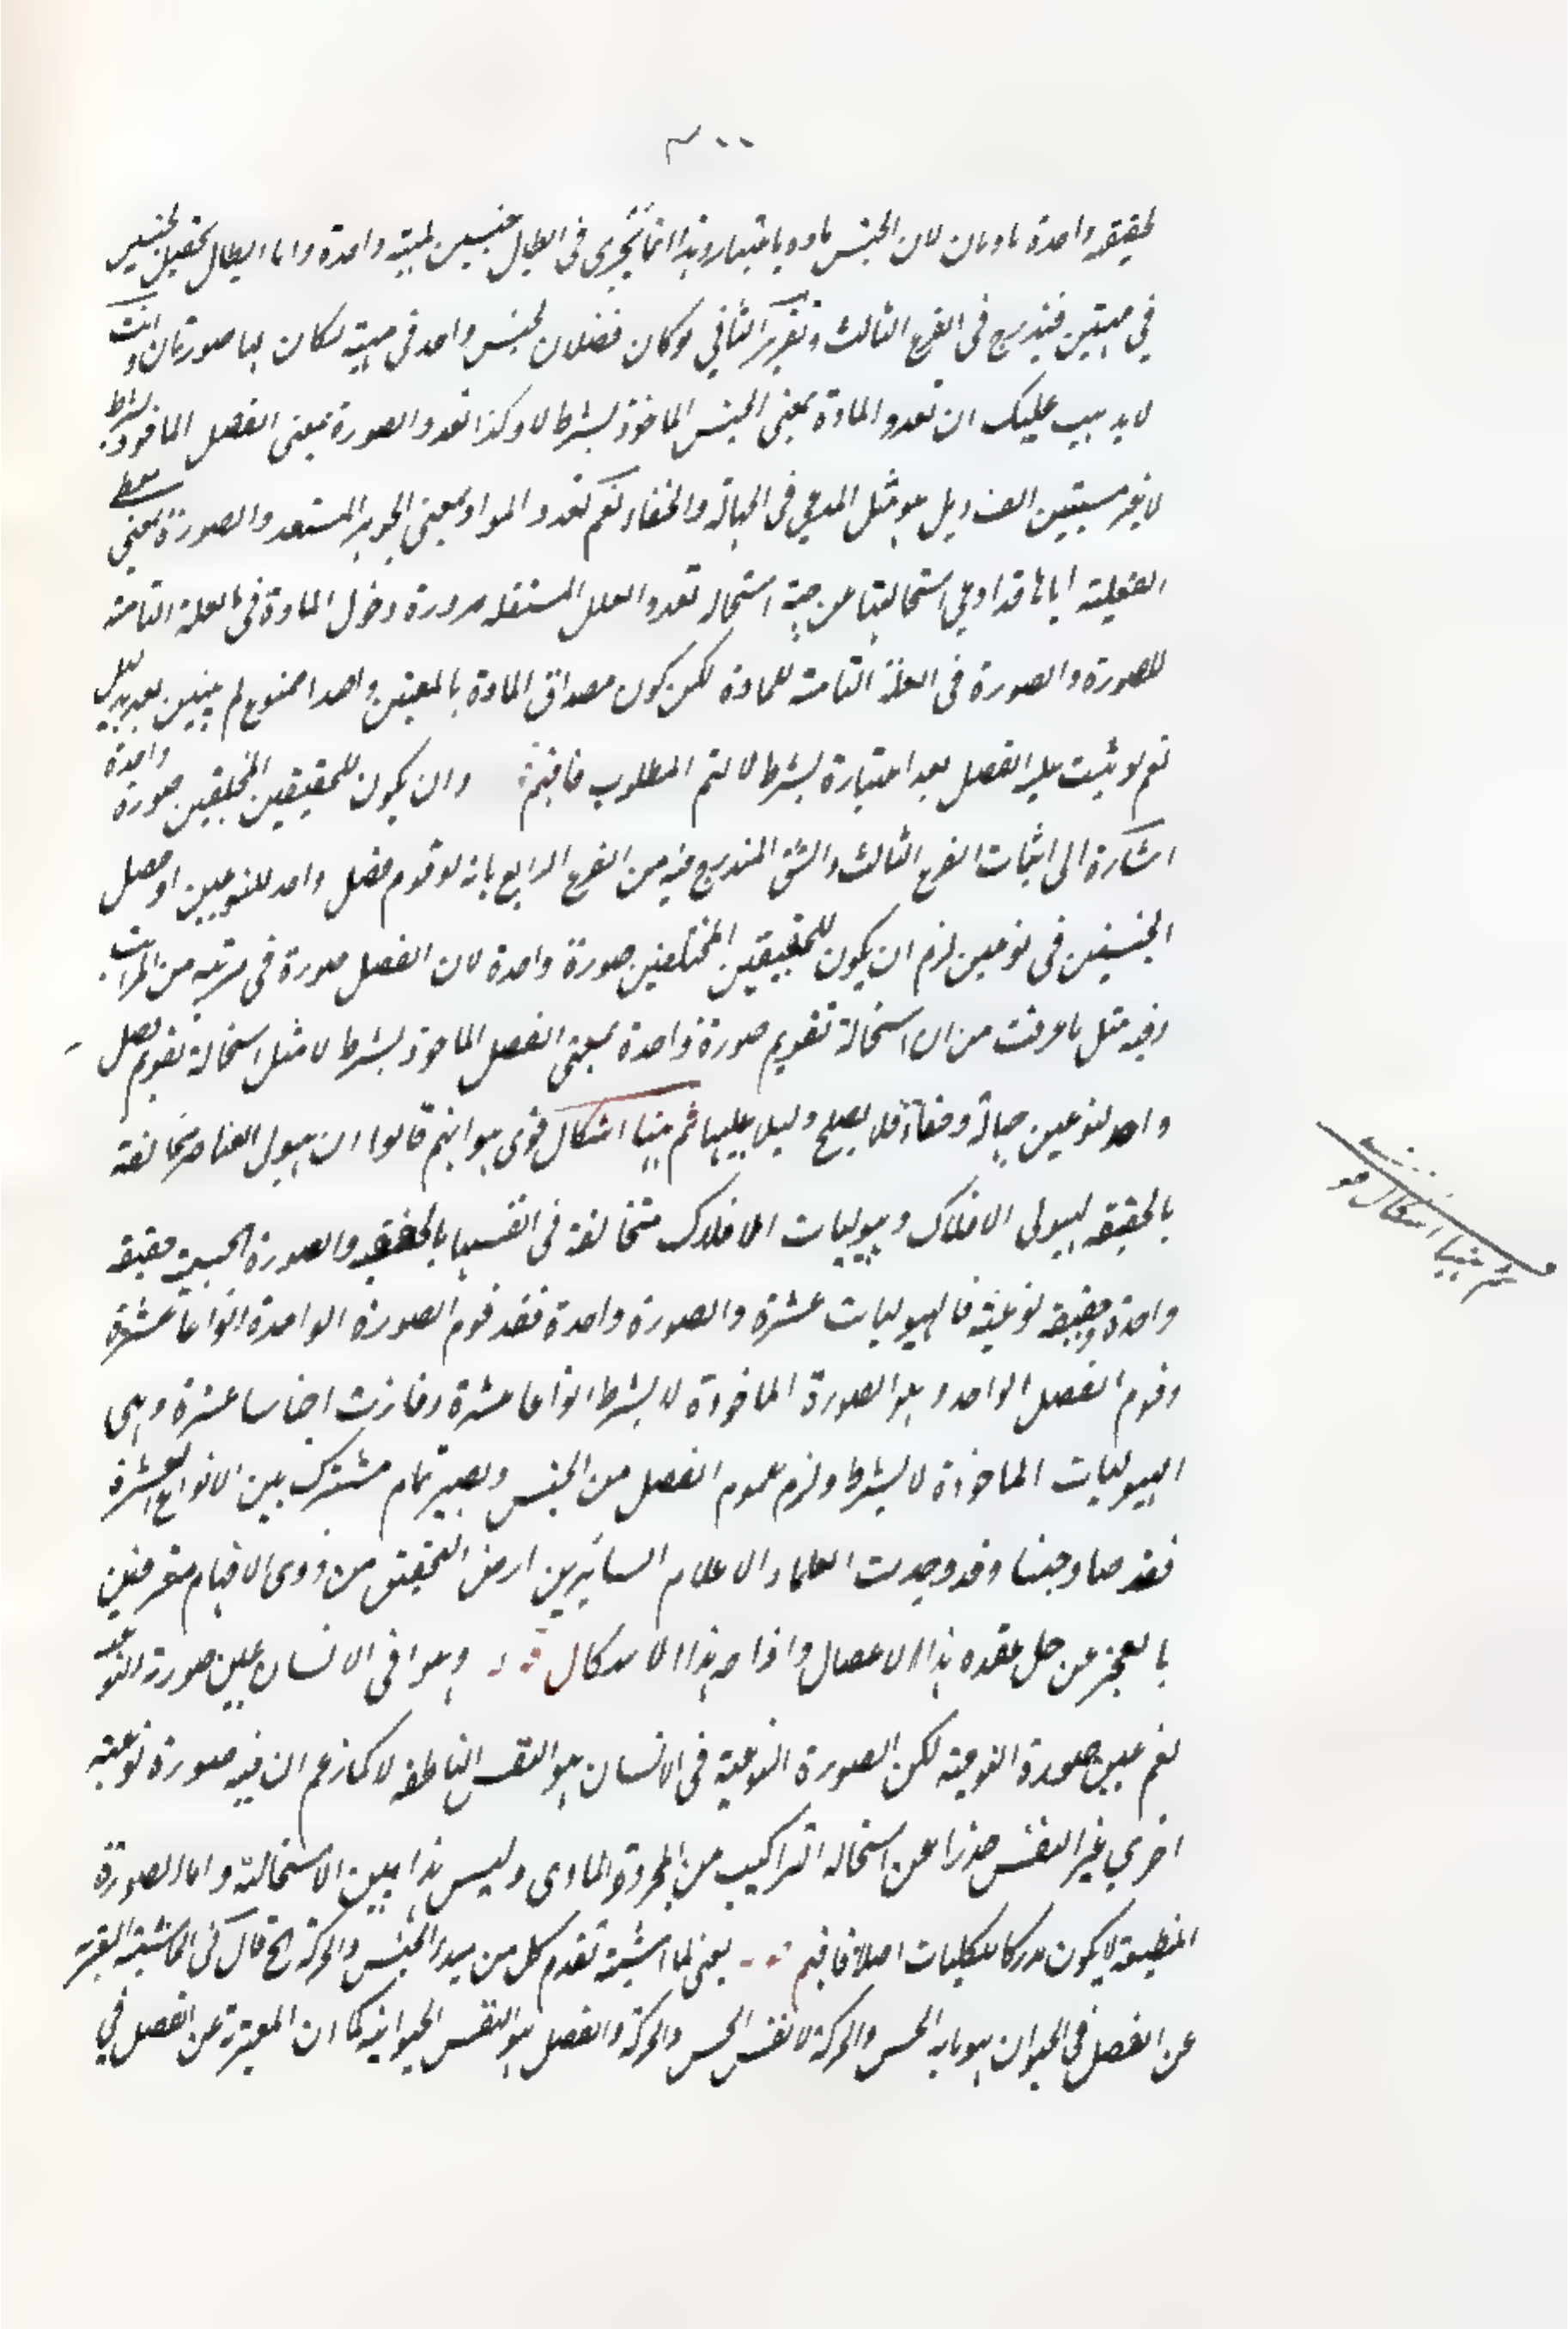 ٣٠٠
لحقيقة واحدة مادتان لان الجنس مادة باعتبار وهذا انما يجرى فى ابطال جنسين لمهية واحدة واما ابطال تحصيل الجنس
في مهيتين فيندرج فى الفرع الثالث وتقرير الثاني لو كان فصلان لجنس واحد فى مهية لكان لها صورتان وانت
لا يذهب عليك ان تعدد المادة بمعنى الجنس الماخوذ بشرط لا وكذا تعدد الصورة بمعنى الفصل الماخوذ بشرط
لا غير مستبين الفساد بل هو مثل المدعى فى الجهالة والخفاء نعم تعدد المواد بمعنى الجوهر المستعد والصورة بمعنى معطى
الفعلية اياها قد ادعى استحالتها من جهة استحالة تعدد العلل المستقلة ضرورة دخول المادة فى العلة التامة
للصورة والصورة فى العلة التامة للمادة لكن كون مصداق المادة بالمعنيين واحدا ممنوع لم يتبين بعد بدليل
نعم لو ثبت علية الفصل بعد اعتباره بشرط لا لتم المطلوب فافهم وان يكون للحقيقتين المختلفتين صورة واحدة
اشارة الى اثبات الفرع الثالث والشق المندرج فيه من الفرع الرابع بانه لو قوم فصل واحد للنوعين او حصل
الجنسين فى نوعين لزم ان يكون للحقيقتين المختلفتين صورة واحدة لان الفصل صورة فى مرتبة من المراتب
وفيه مثل ما عرفت من ان استحالة تقويم صورة واحدة بمعنى الفصل الماخوذ بشرط لا مثل استحالة تقويم فصل
واحد لنوعين جهالة وخفاء فلا يصلح دليلا عليها ثم هنا اشكال قوى هو انهم قالوا ان هيولى العناصر مخالفة
بالحقيقة لهيولى الافلاك وهيوليات الافلاك متخالفة فى انفسها بالحقيقة والصورة الجسمية حقيقة
واحدة حقيقة نوعية فالهيوليات عشرة والصورة واحدة فقد قوم الصورة الواحدة انواعا عشرة
وقوم الفصل الواحد وهو الصورة الماخوذة لا بشرط انواعا عشرة وقارنت اجناسا عشرة وهى
الهيوليات الماخوذة لا بشرط ولزم عموم الفصل من الجنس ويصير تمام مشترك بين الانواع العشرة
فقد صار جنسا وقد وجدت العلماء الاعلام السائرين ارض التحقيق من ذوى الافهام معترفين
بالعجز عن حل عقده هذا الاعضال واذا حه هذا الاشكال وهو فى الانسان عين صورته النوعية
نعم عين صورة النوعية لكن الصورة النوعية فى الانسان هو النفس الناطقة لا كما زعم ان فيه صورة نوعية
اخرى غير النفس حذرا عن استحالة التراكيب من المجرد والمادى وليس هذا بين الاستحالة واما الصورة
المنطبعة لا يكون مدركا للكليات اصلا فافهم يعنى لما اشتبه تقدم كل من مبدء الحس والحركة الخ قال فى الحاشية المعبر به
عن الفصل في الحيوان هو ما به الحس والحركة لا نفس الحس والحركة والفصل هو النفس الحيوانية كما ان المعبر به عن الفصل في
ثم هنا اشكال قو